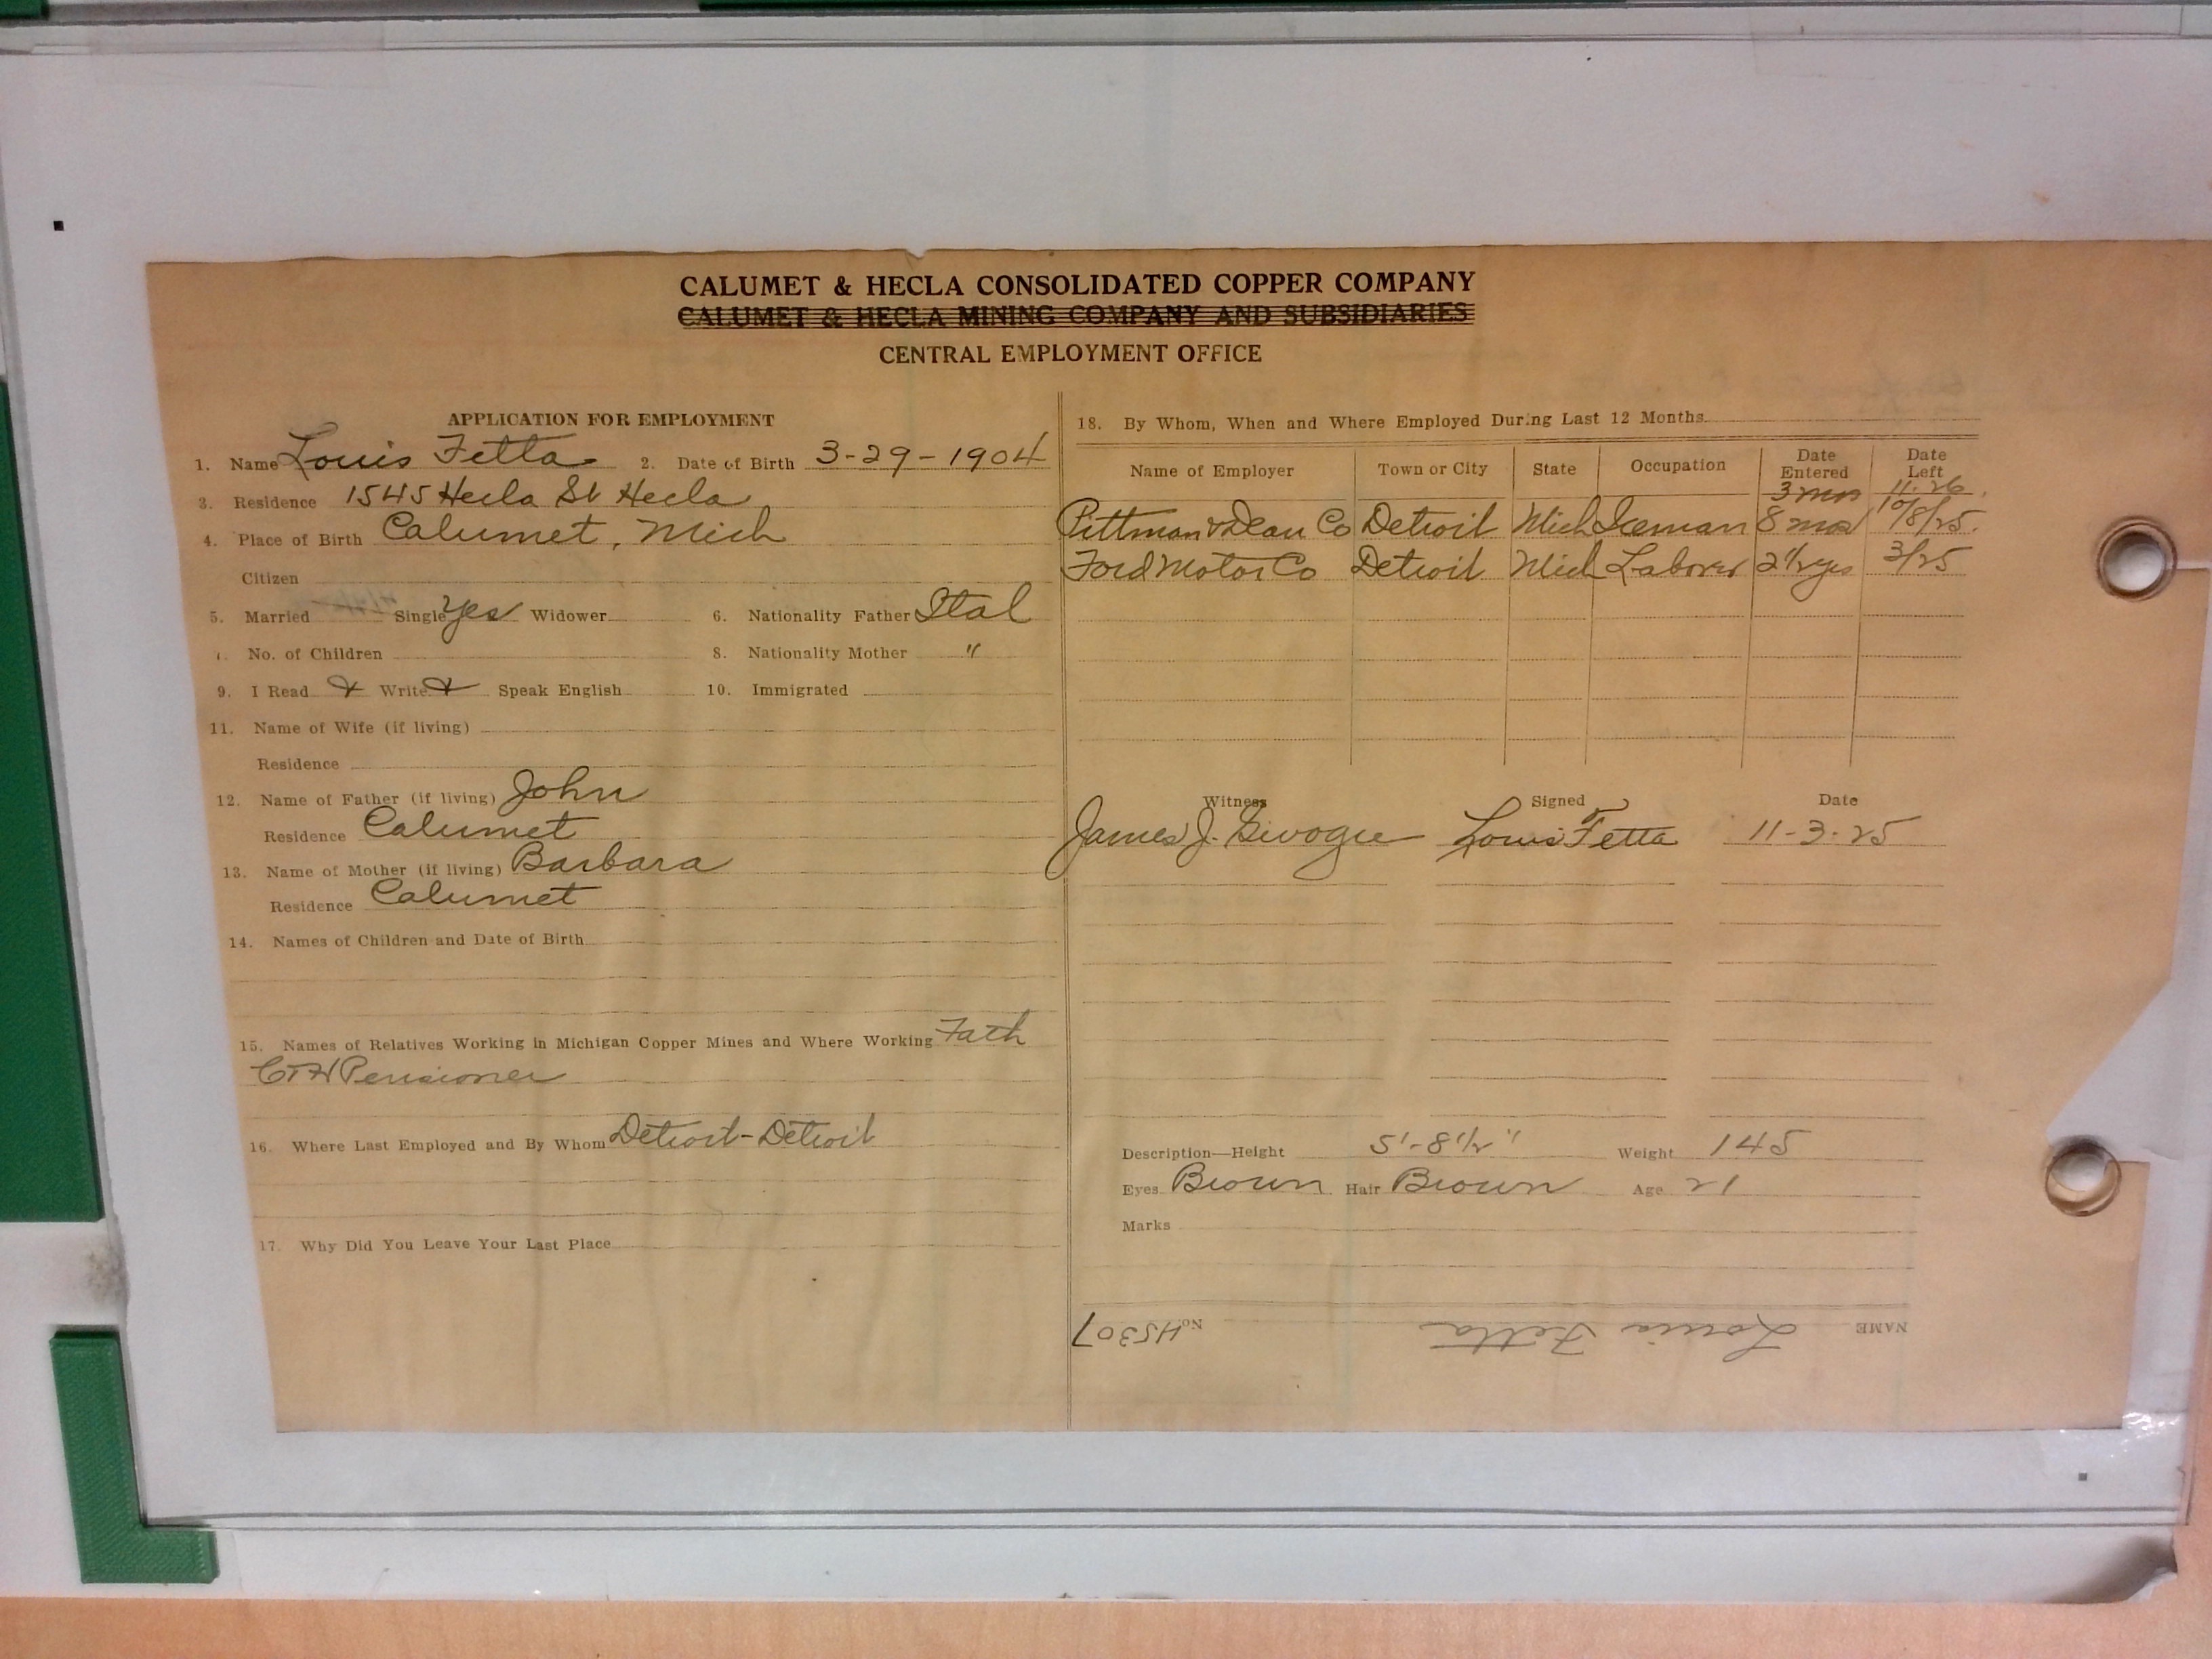 CALUMET & HECLA CONSOLIDATED COPPER COMPANY
CALUMET & HECLA MINING COMPANY AND SUBSIDIARIES
CENTRAL EMPLOYMENT OFFICE
APPLICATION FOR EMPLOYMENT
1. Name Louis Fetta 2. Date of Birth 3-29-1904
3. Residence 1545 Hecla St Hecla
4. Place of Birth Calumet, Mich
Citizen
5. Married Single Yes Widower 6. Nationality Father Ital
No. of Children 8. Nationality Mother "
9. I Read Write Speak English 10. Immigrated
11. Name of Wife (if living)
Residence
12. Name of Father (if living) John
Residence Calumet
13. Name of Mother (if living) Barbara
Residence Calumet
14. Names of Children and Date of Birth
15. Names of Relatives Working in Michigan Copper Mines and Where Working Fath
C+H Pensioner
16. Where Last Employed and By Whom Detroit-Detroit
17. Why Did You Leave Your Last Place
18. By Whom, When and Where Employed During Last 12 Months
Name of Employer Town or City State Occupation Date Entered Date Left
3 mos 11-26
Pittman & Dean Co Detroit Mich Iceman 8 mos 10/8/25
Ford Motor Co Detroit Mich Laborer 2 1/2 yrs 3/25
Witness Signed Date
James J. Louis Fetta 11-3-25
Description—Height 5'-8 1/2" Weight 145
Eyes Brown Hair Brown Age 21
Marks
NAME Louis Fetta No. 45307